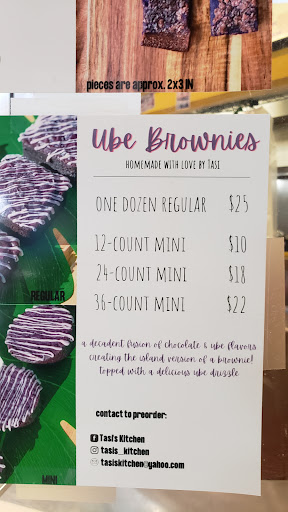 pieces are approx. 2x3 IN
Ube Brownies
HOMEMADE WITH LOVE BY TASI
ONE DOZEN REGULAR $25
12-COUNT MINI $10
24-COUNT MINI $18
36-COUNT MINI $22
a decadent fusion of chocolate & ube flavors
creating the island version of a brownie!
topped with a delicious ube drizzle
REGULAR
MINI
contact to preorder:
Tasi's Kitchen
tasis_kitchen
tasiskitchen@yahoo.com